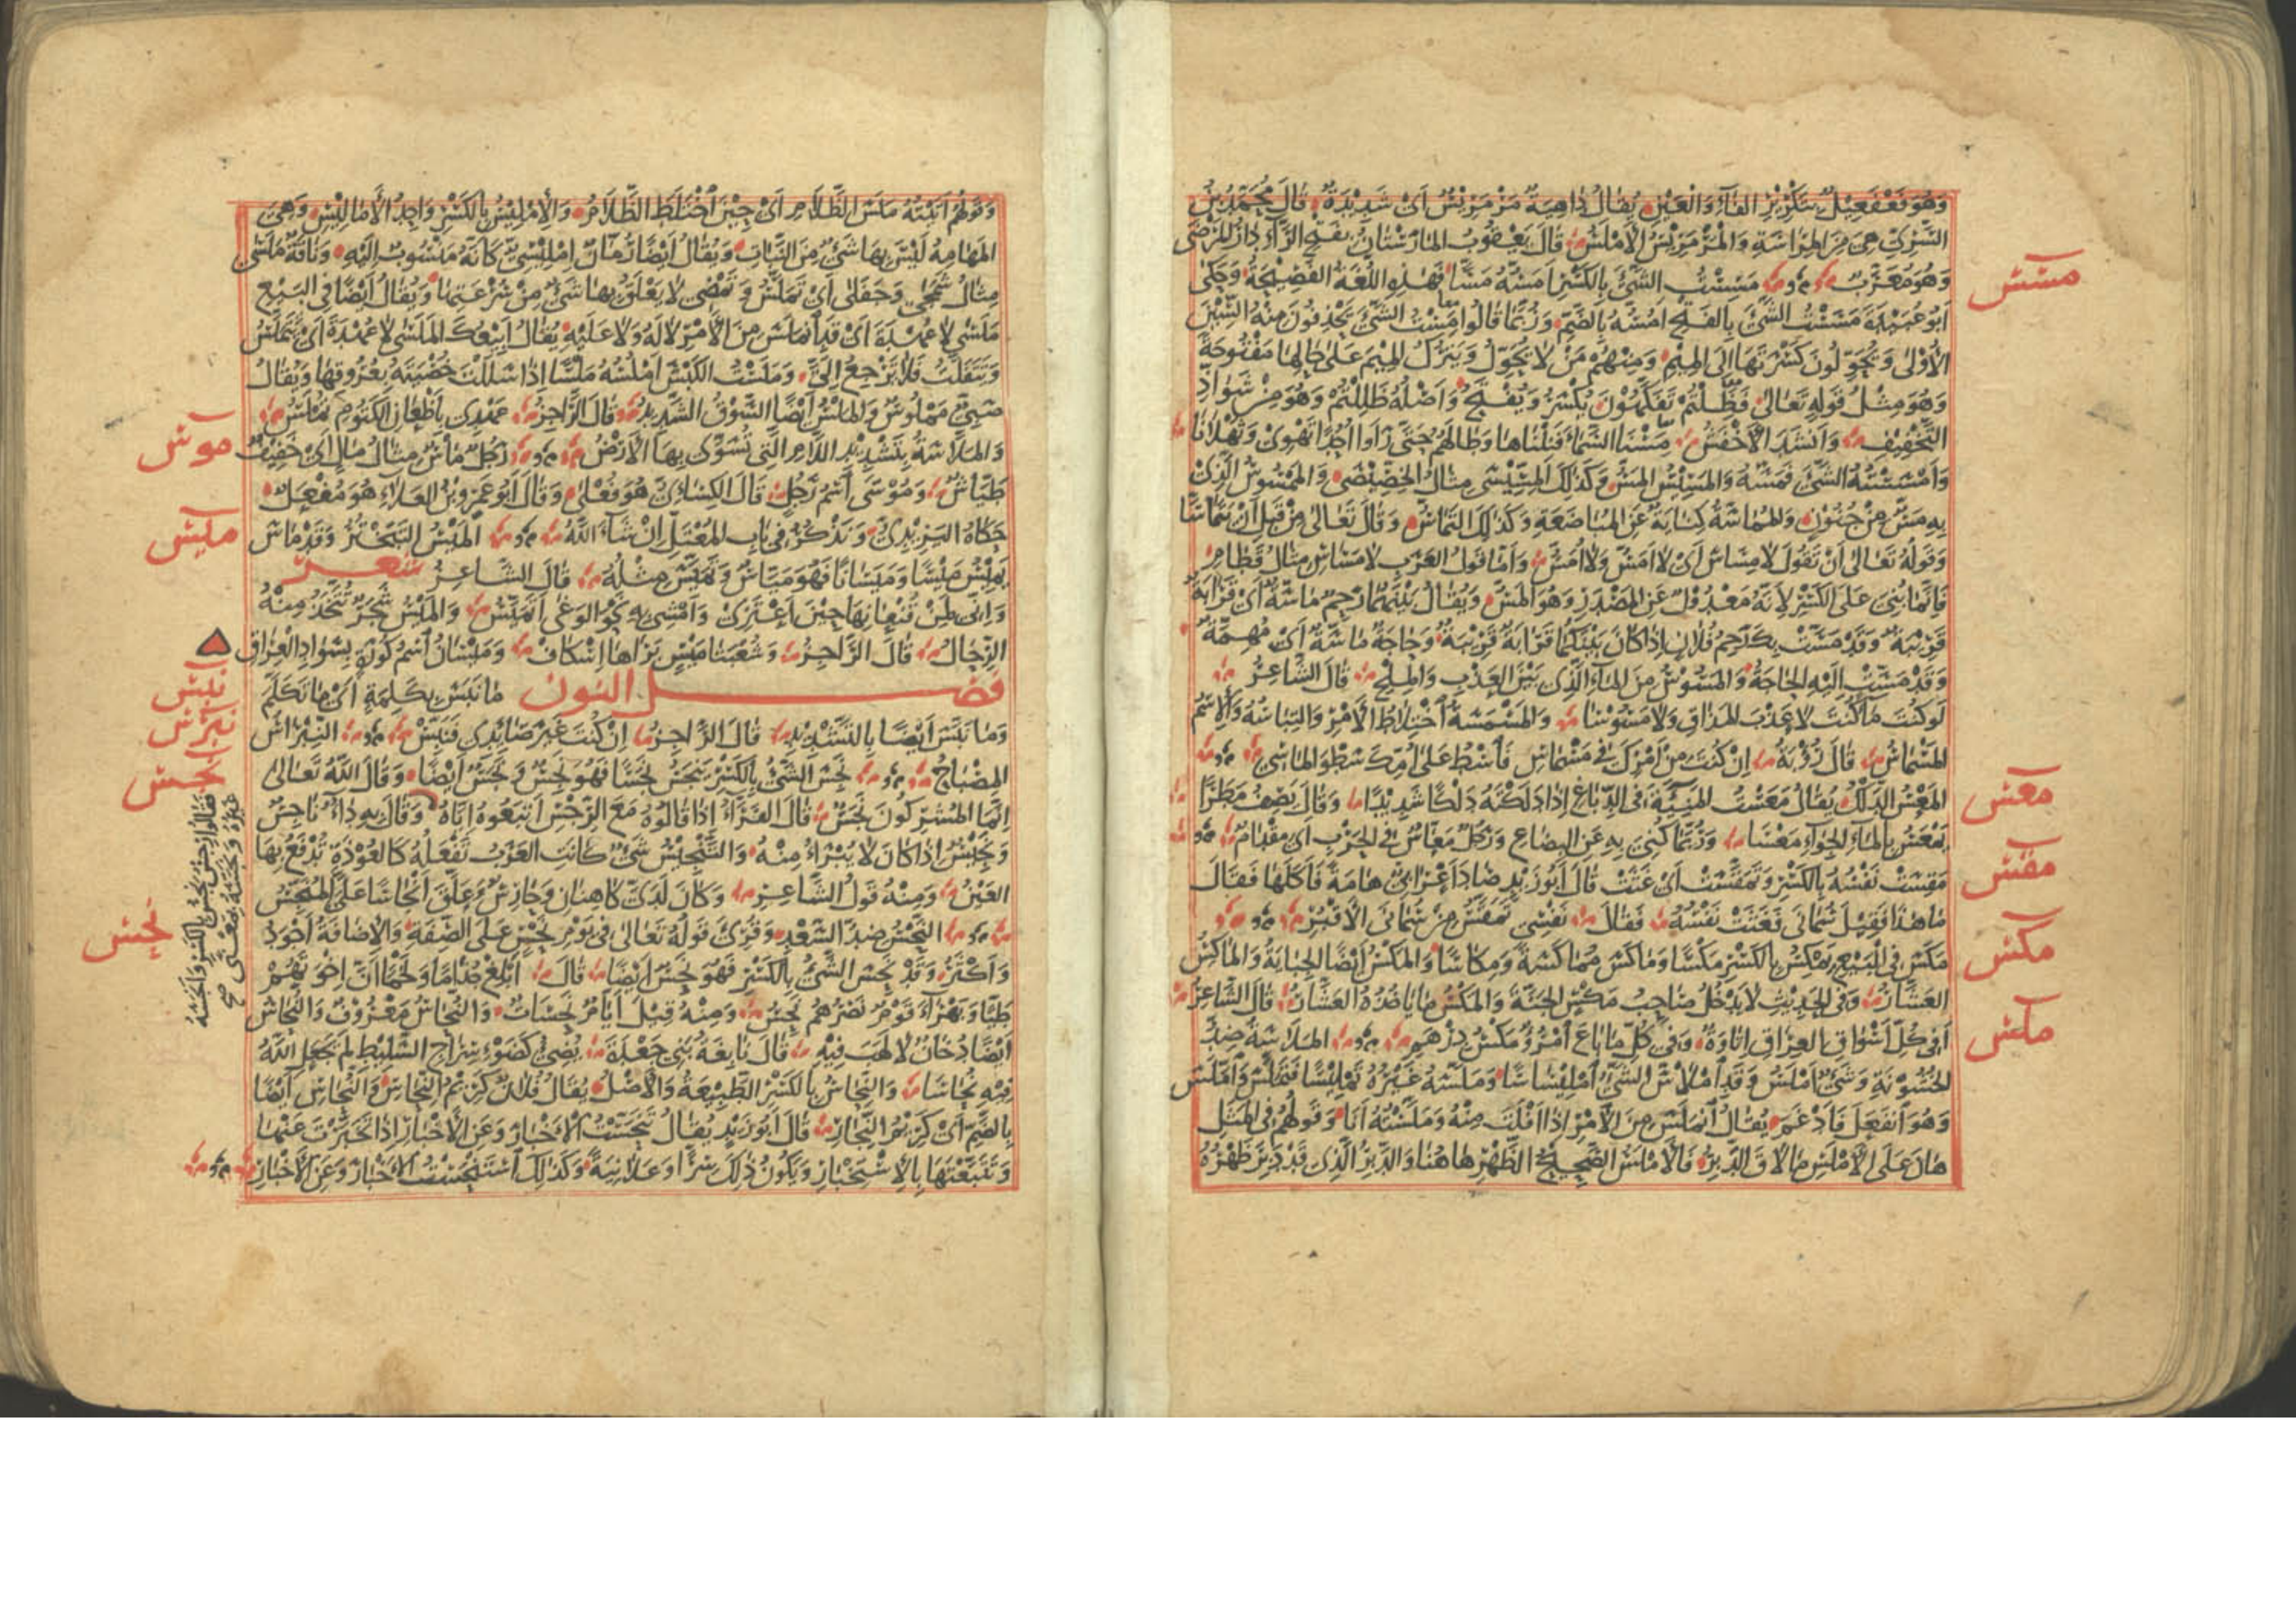 وَهُوَ فَعْفَعِيلٌ بتَكْرِيْرِ الفَآءِ وَالعَيْنِ يُقَالُ دَاهِيَةٌ مَرْمَرِيْسٌ اَىْ شَدِيْدَةٌ قَالَ مُحَمَّدُ بْنُ
السَّرِىِّ هِىَ مِنَ المَرَاسَةِ وَالمَرْمَرِيْسُ الأَمْلَسُ قَالَ يَعْقُوبُ المَارَسْتَانُ بفَتْحِ الرَّآءِ دَارُ المَرْضَى
وَهُوَ مُعَرَّبٌ مَسِسْتُ الشَّىْءَ بِالكَسْرِ اَمَسُّهُ مَسًّا فَهٰذِهِ اللُّغَةُ الفَصِيْحَةُ وَحَكَى
مسس
اَبُو عُبَيْدَةَ مَسَسْتُ الشَّىْءَ بِالفَتْحِ اَمُسُّهُ بِالضَّمِّ وَرُبَّمَا قَالُوا مِسْتُ الشَّىْءَ يَحْذِفُونَ مِنْهُ السِّيْنَ
الاُوْلَى وَيُحَوِّلُونَ كَسْرَتَهَا اِلَى المِيْمِ وَمِنْهُمْ مَنْ لَا يُحَوِّلُ وَيَتْرُكُ المِيْمَ عَلَى حَالِهَا مَفْتُوحَةً
وَهُوَ مِثْلُ قَوْلِهِ تَعَالَى فَظَلْتُمْ تَفَكَّهُوْنَ يُكْسَرُ وَيُفْتَحُ وَاَصْلُهُ ظَلِلْتُمْ وَهُوَ مِنْ شَوَاذِّ
التَّخْفِيْفِ وَاَنْشَدَ الأَخْفَشُ مِسْنَا السَّمَاءَ فَنِلْنَاهَا وَطَالَهُمُ حَتَّى رَاَوا اُحُدًا تَهْوِىْ وَثَهْلَانَا
وَاَمْسَسْتُهُ الشَّىْءَ فَمَسَّهُ وَالمَسِيْسُ المَسُّ وَكَذٰلِكَ المِسِّيْسَى مِثَالُ الخِصِّيْصَى وَالمَمْسُوسُ الَّذِىْ
بِهِ مَسٌّ مِنْ جُنُوْنٍ وَالمُمَاسَّةُ كِنَايَةٌ عَنِ المُبَاضَعَةِ وَكَذٰلِكَ التَّمَاسُّ وَقَالَ تَعَالَى مِنْ قَبْلِ اَنْ يَتَمَاسَّا
وَقَوْلُهُ تَعَالَى اَنْ تَقُوْلَ لَا مِسَاسَ اَىْ لَا اَمَسُّ وَلَا اُمَسُّ وَاَمَّا قَوْلُ العَرَبِ لَا مَسَاسِ مِثَالُ قَطَامِ
فَاِنَّمَا بُنِىَ عَلَى الكَسْرِ لِاَنَّهُ مَعْدُوْلٌ عَنِ المَصْدَرِ وَهُوَ المَسُّ وَيُقَالُ بَيْنَهُمَا رَحِمٌ مَاسَّةٌ اَىْ قَرَابَةٌ
قَرِيْبَةٌ وَقَدْ مَسَّتْ بِكَ رَحِمُ فُلَانٍ اِذَا كَانَ بَيْنَكُمَا قَرَابَةٌ قَرِيْبَةٌ وَحَاجَةٌ مَاسَّةٌ اَىْ مُهِمَّةٌ
وَقَدْ مَسَّتْ اِلَيْهِ الحَاجَةُ وَالمَسُوْسُ مِنَ المَاءِ الَّذِى بَيْنَ العَذْبِ وَالمِلْحِ قَالَ الشَّاعِرُ
لَو كُنْتَ مَآءً كُنْتَ لَا عَذْبَ المَذَاقِ وَلَا مَسُوْسَا وَالمَسْمَسَةُ اخْتِلَاطُ الاَمْرِ وَالتِبَاسُهُ وَالاِسْمُ
المَسْمَاسُ قَالَ رُؤْبَةُ اِنْ كُنْتَ مِنْ اَمْرِكَ فِى مَسْمَاسِ فَاسْطُ عَلَى اُمِّكَ سَطْوَ المَاسِىْ
المَعْسُ الدَّلْكُ يُقَالُ مَعَسْتُ المَنِيْئَةَ فِى الدِّبَاغِ اِذَا دَلَكْتَهُ دَلْكًا شَدِيْدًا وَقَالَ يَصِفُ مَطَرًا
معس
يَمْعَسُ بِالمَاءِ الجِوَاءَ مَعْسَا وَرُبَّمَا كُنِىَ بِهِ عَنِ البِضَاعِ وَرَجُلٌ مَعَّاسٌ فِى الحَرْبِ اى مِقْدَامٌ
مَقِسَتْ نَفْسُهُ بِالكَسْرِ وَتَمَقَّسَتْ اَىْ غَثَتْ قَالَ اَبُو زَيْدٍ صَادَ اَعْرَابِىٌّ هَامَةً فَاَكَلَهَا فَقَالَ
مقس
مَا هٰذَا فَقِيْلَ سُمَانَى فَغَثَتْ نَفْسُهُ فَقَالَ نَفْسِى تَمَقَّسُ مِنْ سُمَانَى الاَقْبُرِ
مَكَسَ فِى البَيْعِ يَمْكِسُ بِالكَسْرِ مَكْسًا وَمَاكَسَ مُمَاكَسَةً وَمِكَاسًا وَالمَكْسُ اَيْضًا الجِبَايَةُ وَالمَاكِسُ
مكس
العَشَّارُ وَفِى الحَدِيْثِ لَا يَدْخُلُ صَاحِبُ مَكْسٍ الجَنَّةَ وَالمَكْسُ مَا يَاخُذُهُ العَشَّارُ قَالَ الشَّاعِرُ
اَفِى كُلِّ اَسْوَاقِ العِرَاقِ اِتَاوَةٌ وَفِى كُلِّ مَا بَاعَ امْرُؤٌ مَكْسُ دِرْهَمِ المَلَاسَةُ ضِدُّ
ملس
الخُشُوْنَةِ وَشَىْءٌ اَمْلَسُ وَقَدِ امْلَاسَّ الشَّىْءُ امْلِيْسَاسًا وَمَلَّسَهُ غَيْرُهُ تَمْلِيْسًا فَتَمَلَّسَ وَامَّلَسَ
وَهُوَ انْفَعَلَ فَادْغَمَ يُقَالُ انْمَلَسَ مِنَ الاَمْرِ اِذَا اَفْلَتَ مِنْهُ وَمَلَّسْتُهُ اَنَا وَقَوْلُهُمْ فِى المَثَلِ
هَانَ عَلَى الاَمْلَسِ مَا لَاقَى الدَّبِرُ فَالاَمْلَسُ الصَّحِيْحُ الظَّهْرِ هَاهُنَا وَالدَّبِرُ الَّذِى قَدْ دَبِرَ ظَهْرُهُ
وَقَوْلُهُمْ اَتَيْتُهُ مَلَسَ الظَّلَامِ اَىْ حِيْنَ اخْتَلَطَ الظَّلَامُ وَالاِمْلِيْسُ بِالكَسْرِ وَاحِدُ الاَمَالِيْسِ وَهِىَ
المَهَامِهُ لَيْسَ بِهَا شَىْءٌ مِنَ النَّبَاتِ وَيُقَالُ اَيْضًا رُمَّانٌ اِمْلِيْسِىٌّ كَانَّهُ مَنْسُوبٌ اِلَيْهِ وَنَاقَةٌ مَلَسَى
مِثَالُ شَمَجَى وَجَفَلَى اَىْ تَمَلَّسُ وَتَمْضِى لَا يَعْلَقُ بِهَا شَىْءٌ مِنْ سُرْعَتِهَا وَيُقَالُ اَيْضًا فِى البَيْعِ
مَلَسَى لَا عُهْدَةَ اَىْ قَدِ انْمَلَسَ مِنَ الاَمْرِ لَا لَهُ وَلَا عَلَيْهِ يُقَالُ اَبِيْعُكَ المَلَسَى لَا عُهْدَةَ اَىْ تَتَمَلَّسُ
وَتَتَفَلَّتُ فَلَا تَرْجِعُ اِلَىَّ وَمَلَسْتُ الكَبْشَ اَمْلُسُهُ مَلْسًا اِذَا سَلَلْتَ خُصْيَتَيْهِ بِعُرُوقِهَا وَيُقَالُ
صَبِىٌّ مَمْلُوسٌ وَالمَلْسُ اَيْضًا السَّوْقُ الشَّدِيْدُ قَالَ الرَّاجِزُ عَهْدِى بِاَظْعَانِ الكَتُومِ تُمْلَسُ
وَالمَلَّاسَةُ بِتَشْدِيْدِ اللَّامِ الَّتِى تُسَوَّى بِهَا الاَرْضُ رَجُلٌ مَاسٌ مِثَالُ مَالٍ اَىْ خَفِيْفٌ
موس
طَيَّاشٌ وَمُوْسَى اسْمُ رَجُلٍ قَالَ الكِسَائِىُّ هُوَ فُعْلَى وَقَالَ اَبُو عَمْرِو بْنُ العَلَاءِ هُوَ مُفْعَلٌ
حَكَاهُ اليَزِيْدِىُّ وَنَذْكُرُهُ فِى بَابِ المُعْتَلِّ اِنْ شَآءَ اللّٰهُ المَيْسُ التَّبَخْتُرُ وَقَدْ مَاسَ
ميس
يَمِيْسُ مَيْسًا وَمَيَسَانًا فَهُوَ مَيَّاسٌ وَتَمَيَّسَ مِثْلُهُ قَالَ الشَّاعِرُ شعر
وَاِنِّى لَمِنْ قُنْعَانِهَا حِيْنَ اَعْتَزِىْ وَاَمْشِى بِهِ نَحْوَ الوَغَى اَتَمَيَّسُ وَالمَيْسُ شَجَرٌ تُتَّخَذُ مِنْهُ
الرِّحَالُ قَالَ الرَّاجِزُ وَشُعْبَتَا مَيْسٍ بَرَاهَا اِسْكَافْ وَمَيْسَانُ اسْمُ كُوْرَةٍ بِسَوَادِ العِرَاقِ
فصل النون مَا نَبَسَ بِكَلِمَةٍ اَىْ مَا تَكَلَّمَ
نبس
وَمَا نَبَّسَ اَيْضًا بِالتَّشْدِيْدِ قَالَ الرَّاجِزُ اِنْ كُنْتَ غَيْرَ صَائِدِى فَنَبِّسْ النِّبْرَاسُ
نبرس
المِصْبَاحُ نَجِسَ الشَّىْءُ بِالكَسْرِ يَنْجَسُ نَجَسًا فَهُوَ نَجِسٌ وَنَجَسٌ اَيْضًا وَقَالَ اللّٰهُ تَعَالَى
نجس
اِنَّمَا المُشْرِكُونَ نَجَسٌ قَالَ الفَرَّاءُ اِذَا قَالُوهُ مَعَ الرِّجْسِ اَتْبَعُوهُ اِيَّاهُ وَقَالَ بِهِ دَاءٌ نَاجِسٌ
فقالوا رجس نجس بالكسر وانجسه
غيره ونجسه بمعنى صح
وَنَجِيْسٌ اِذَا كَانَ لَا يُبْرَاُ مِنْهُ وَالتَّنْجِيْسُ شَىْءٌ كَانَتِ العَرَبُ تَفْعَلُهُ كَالعُوْذَةِ تُدْفَعُ بِهَا
العَيْنُ وَمِنْهُ قَوْلُ الشَّاعِرِ وَكَانَ لَدَىَّ كَاهِنَانِ وَحَارِسٌ وَعَلَّقَ اَنْجَاسًا عَلَىَّ المُنَجِّسُ
النَّحْسُ ضِدُّ السَّعْدِ وَقُرِئَ قَوْلُهُ تَعَالَى فِى يَوْمِ نَحْسٍ عَلَى الصِّفَةِ وَالاِضَافَةُ اَجْوَدُ
نحس
وَاَكْثَرُ وَقَدْ نَحِسَ الشَّىْءُ بِالكَسْرِ فَهُوَ نَحِسٌ اَيْضًا قَالَ اَبْلِغْ جُذَامًا وَلَخْمًا اَنَّ اِخْوَتَهُمْ
طَيًّا وَبَهْرَاءَ قَوْمٌ نَصْرُهُمْ نَحِسُ وَمِنْهُ قِيْلَ اَيَّامٌ نَحِسَاتٌ وَالنُّحَاسُ مَعْرُوْفٌ وَالنُّحَاسُ
اَيْضًا دُخَانٌ لَا لَهَبَ فِيْهِ قَالَ نَابِغَةُ بَنِى جَعْدَةَ يُضِئُ كَضَوْءِ سِرَاجِ السَّلِيْطِ لَمْ يَجْعَلِ اللّٰهُ
فِيْهِ نُحَاسَا وَالنِّحَاسُ بِالكَسْرِ الطَّبِيْعَةُ وَالاَصْلُ يُقَالُ فُلَانٌ كَرِيْمُ النِّحَاسِ وَالنُّحَاسِ اَيْضًا
بِالضَّمِّ اَىْ كَرِيْمُ النِّجَارِ قَالَ اَبُو زَيْدٍ يُقَالُ تَنَحَّسْتُ الاَخْبَارَ وَعَنِ الاَخْبَارِ اِذَا تَخَبَّرْتَ عَنْهَا
وَتَتَبَّعْتَهَا بِالاِسْتِخْبَارِ وَيَكُونُ ذٰلِكَ سِرًّا وَعَلَانِيَةً وَكَذٰلِكَ اسْتَنْحَسْتُ الاَخْبَارَ وَعَنِ الاَخْبَارِ